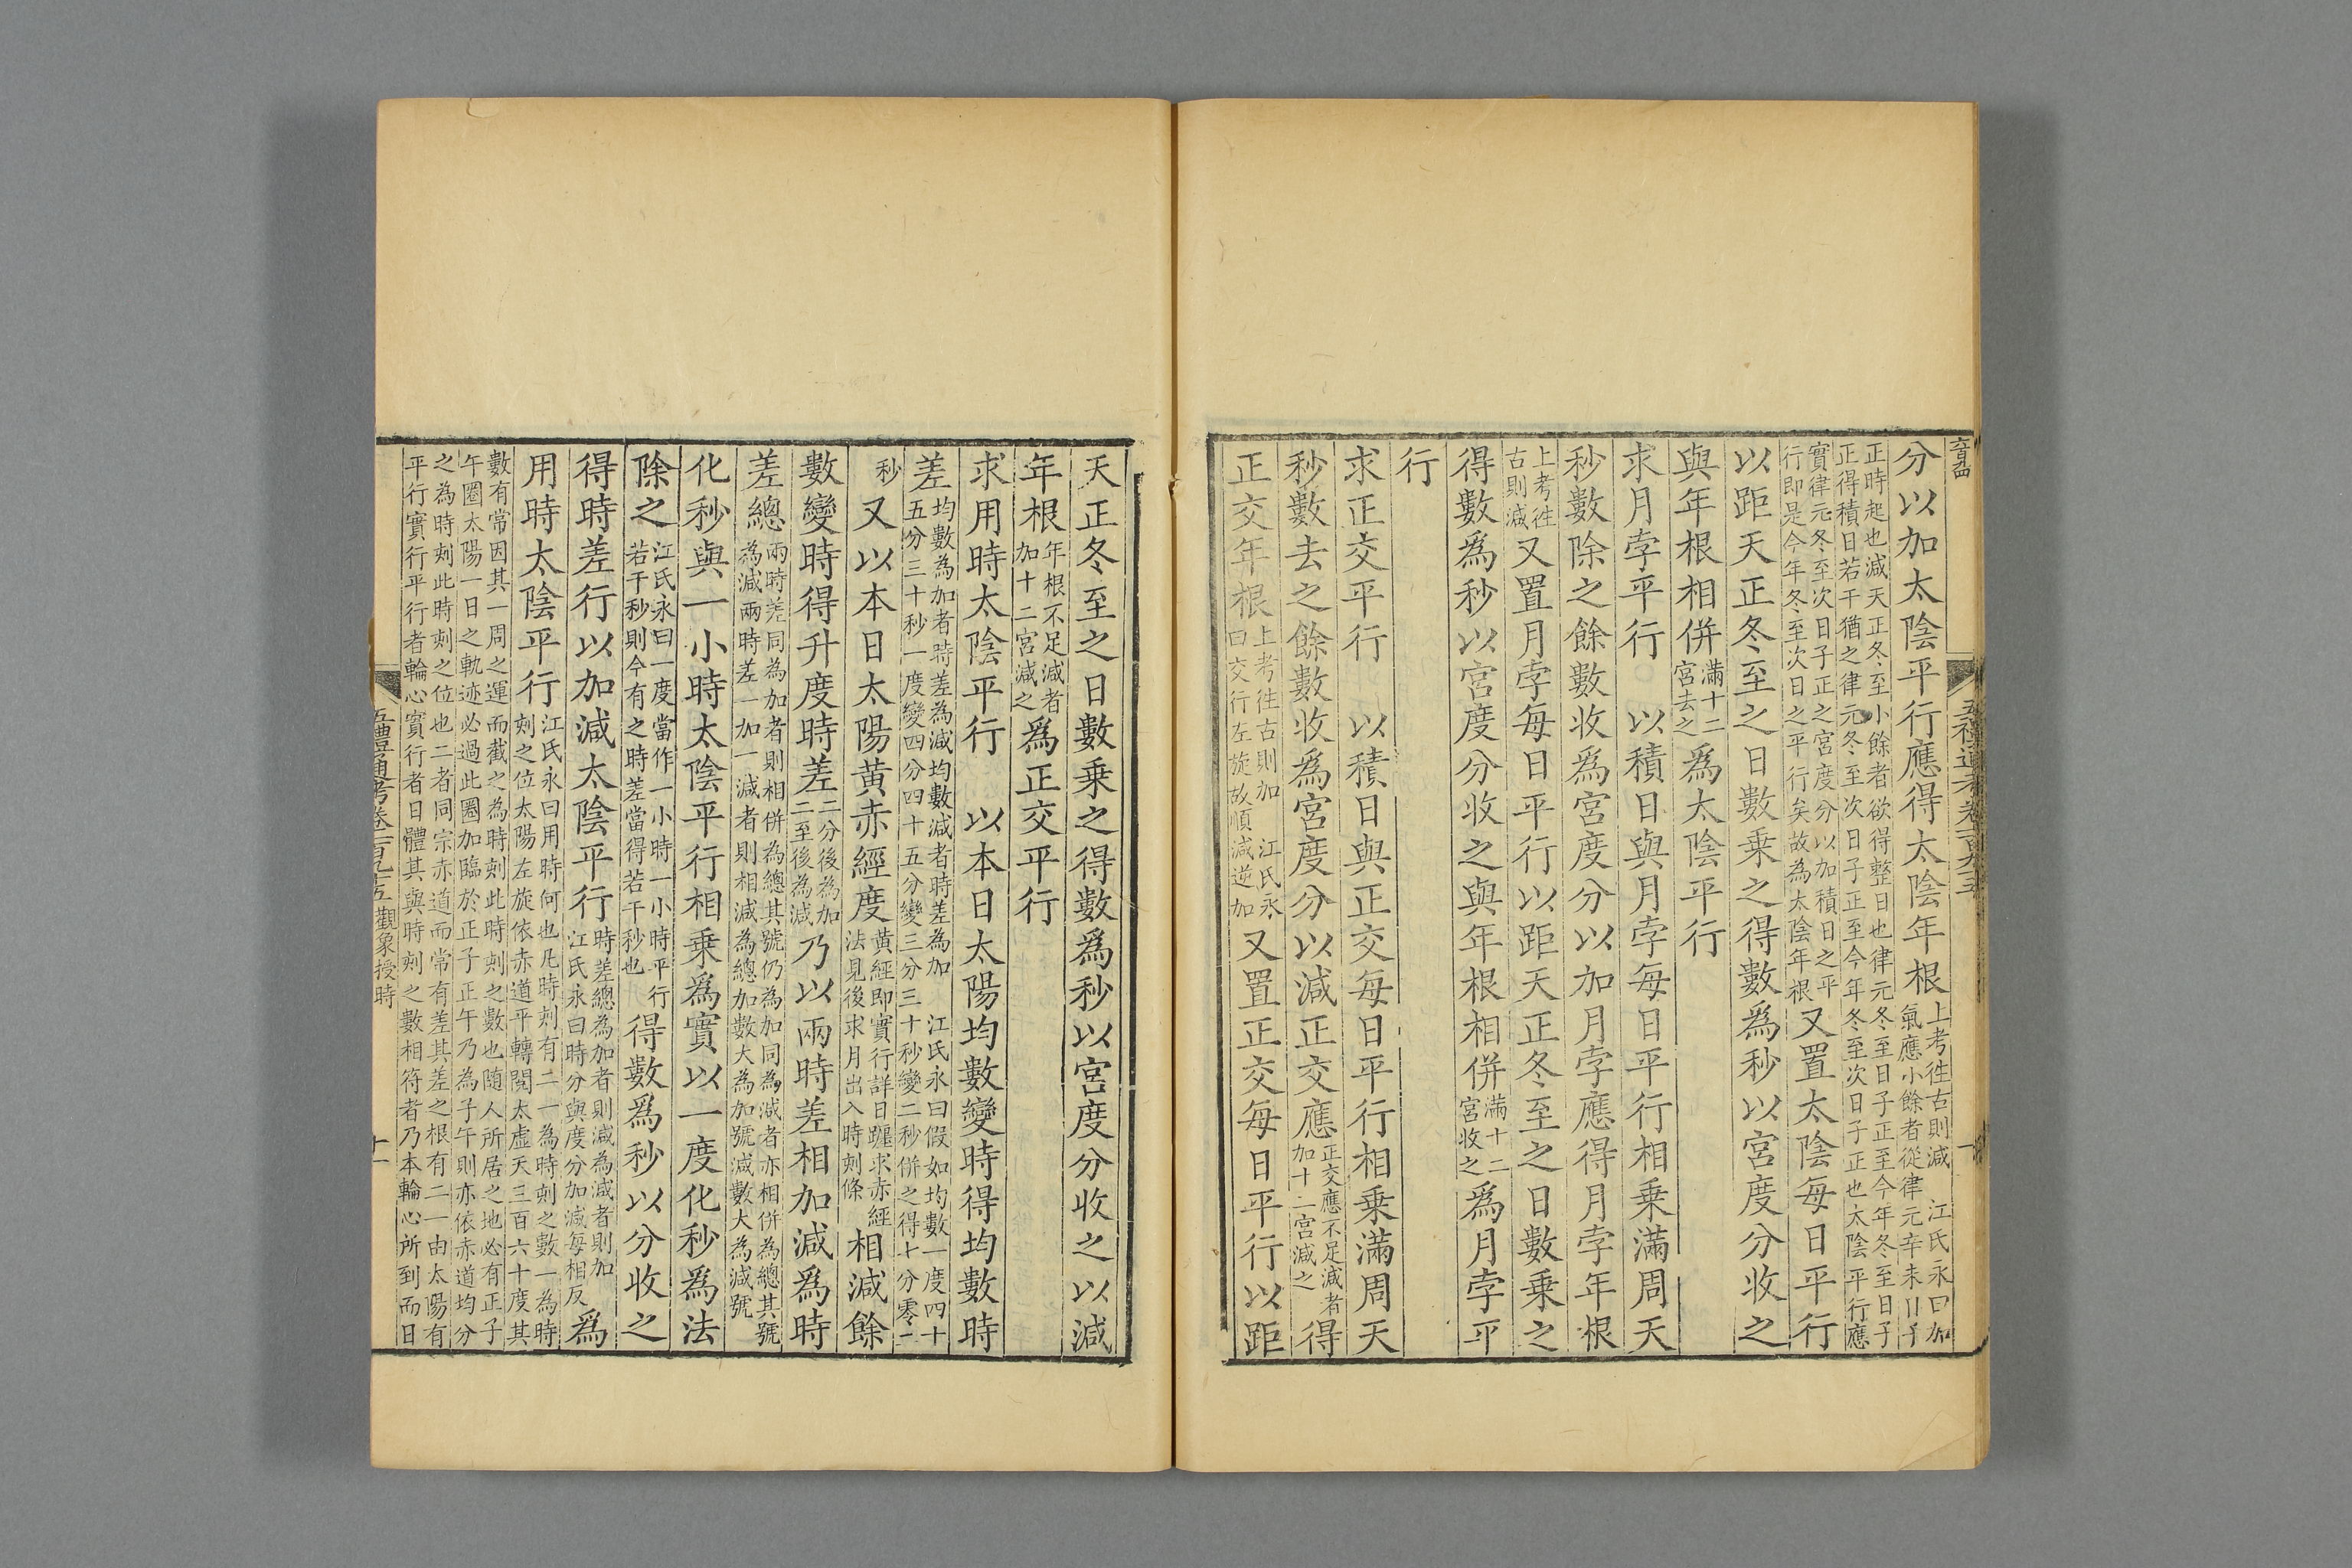 分以加太陰平行應得太陰年根上考徃古則減 江氏永曰加
氣應小餘者從律元辛未日子
正時起也減天正冬至小餘者欲得整日也律元冬至日子正至今年冬至日子
正得積日若干猶之律元冬至次日子正至今年冬至次日子正也太陰平行應
實律元冬至次日子正之宮度分以加積日之平
行即是今年冬至次日之平行矣故為太陰年根又置太陰每日平行
以距天正冬至之日數乗之得數為秒以宮度分收之
與年根相併滿十二
宮去之為太陰平行
求月孛平行 以積日與月孛每日平行相乗滿周天
秒數除之餘數收為宮度分以加月孛應得月孛年根
上考徃
古則減又置月孛每日平行以距天正冬至之日數乗之
得數為秒以宮度分收之與年根相併滿十二
宮收之為月孛平
行
求正交平行 以積日與正交每日平行相乗滿周天
秒數去之餘數收為宮度分以減正交應正交應不足減者
加十二宮減之得
正交年根上考徃古則加 江氏永
曰交行左旋故順減逆加又置正交每日平行以距
天正冬至之日數乗之得數為秒以宮度分收之以減
年根年根不足減者
加十二宮減之為正交平行
求用時太陰平行 以本日太陽均數變時得均數時
差均數為加者時差為減均數減者時差為加 江氏永曰假如均數一度四十
五分三十秒一度變四分四十五分變三分三十秒變二秒併之得七分零二
秒又以本日太陽黃赤經度黃經即實行詳日躔求赤經
法見後求月出入時刻條相減餘
數變時得升度時差二分後為加
二至後為減乃以兩時差相加減為時
差總兩時差同為加者則相併為總其號仍為加同為減者亦相併為總其號
為減兩時差一加一減者則相減為總加數大為加號減數大為減號
化秒與一小時太陰平行相乗為實以一度化秒為法
除之江氏永曰一度當作一小時一小時平行
若干秒則今有之時差當得若干秒也得數為秒以分收之
得時差行以加減太陰平行時差總為加者則減為減者則加
江氏永曰時分與度分加減每相反為
用時太陰平行江氏永曰用時何也凡時刻有二一為時刻之數一為時
刻之位太陽左旋依赤道平轉閱太虛天三百六十度其
數有常因其一周之運而截之為時刻此時刻之數也隨人所居之地必有正子
午圈太陽一日之軌迹必過此圈加臨於正子正午乃為子午則亦依赤道均分
之為時刻此時刻之位也二者同宗赤道而常有差其差之根有二一由太陽有
平行實行平行者輪心實行者日體其與時刻之數相符者乃本輪心所到而日
五禮通考卷一百九十五觀象授時
十一